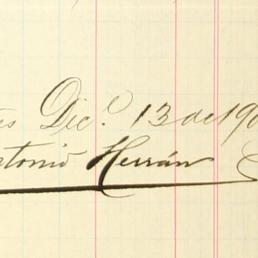 Dic.e 13 de 190
Antonio Herrán